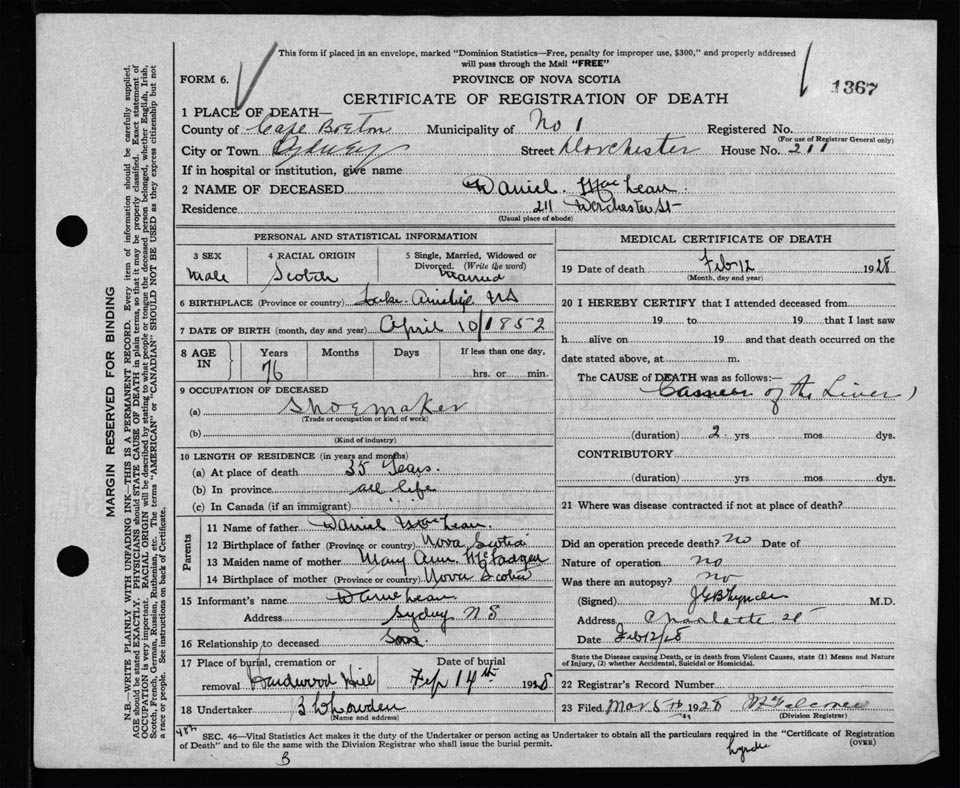 This form if placed in an envelope, marked "Dominion Statistics—Free, penalty for improper use, $300," and properly addressed
will pass through the Mail "FREE"
FORM 6.
PROVINCE OF NOVA SCOTIA
1367
CERTIFICATE OF REGISTRATION OF DEATH
1 PLACE OF DEATH—
County of Cape Breton Municipality of No 1 Registered No.
(For use of Registrar General only)
City or Town Sydney Street Dorchester House No. 211
If in hospital or institution, give name
2 NAME OF DECEASED Daniel MacLean
Residence 211 Dorchester St
(Usual place of abode)
PERSONAL AND STATISTICAL INFORMATION
3 SEX
Male
4 RACIAL ORIGIN
Scotch
5 Single, Married, Widowed or
Divorced. (Write the word)
Married
6 BIRTHPLACE (Province or country) Lake Ainslie NS
7 DATE OF BIRTH (month, day and year) April 10/1852
8 AGE
IN
Years
76
Months
Days
If less than one day,
hrs. or min.
9 OCCUPATION OF DECEASED
(a) Shoemaker
(Trade or occupation or kind of work)
(b)
(Kind of industry)
10 LENGTH OF RESIDENCE (in years and months)
(a) At place of death 35 Years.
(b) In province all life
(c) In Canada (if an immigrant)
Parents
11 Name of father Daniel MacLean.
12 Birthplace of father (Province or country) Nova Scotia
13 Maiden name of mother Mary Ann McFadgen
14 Birthplace of mother (Province or country) Nova Scotia
15 Informant's name
Address Sydney N S
16 Relationship to deceased Son.
17 Place of burial, cremation or
removal Hardwood Hill
Date of burial
14th 1928
18 Undertaker
(Name and address)
MEDICAL CERTIFICATE OF DEATH
19 Date of death Feb 12 1928
(Month, day and year)
20 I HEREBY CERTIFY that I attended deceased from
19 to 19 that I last saw
h alive on 19 and that death occurred on the
date stated above, at m.
The CAUSE of DEATH was as follows:—
of the Liver
(duration) 2 yrs mos dys.
CONTRIBUTORY
(duration) yrs mos dys.
21 Where was disease contracted if not at place of death?
Did an operation precede death? No Date of
Nature of operation no
Was there an autopsy? no
(Signed) M.D.
Address Charlotte St
Date Feb 12/28
State the Disease causing Death, or in death from Violent Causes, state (1) Means and Nature
of Injury, (2) whether Accidental, Suicidal or Homicidal.
22 Registrar's Record Number
23 Filed 1928
(Division Registrar)
SEC. 46—Vital Statistics Act makes it the duty of the Undertaker or person acting as Undertaker to obtain all the particulars required in the "Certificate of Registration
of Death" and to file the same with the Division Registrar who shall issue the burial permit.
(OVER)
B
MARGIN RESERVED FOR BINDING
N.B.—WRITE PLAINLY WITH UNFADING INK—THIS IS A PERMANENT RECORD. Every item of information should be carefully supplied.
AGE should be stated EXACTLY. PHYSICIANS should STATE CAUSE OF DEATH in plain terms, so that it may be properly classified. Exact statement of
OCCUPATION is very important. RACIAL ORIGIN will be described by stating to what people or tongue the deceased person belonged, whether English, Irish,
Scotch, French, German, Russian, Ruthenian, etc. The terms "AMERICAN" or "CANADIAN" SHOULD NOT BE USED as they express citizenship but not
a race or people. See instructions on back of Certificate.